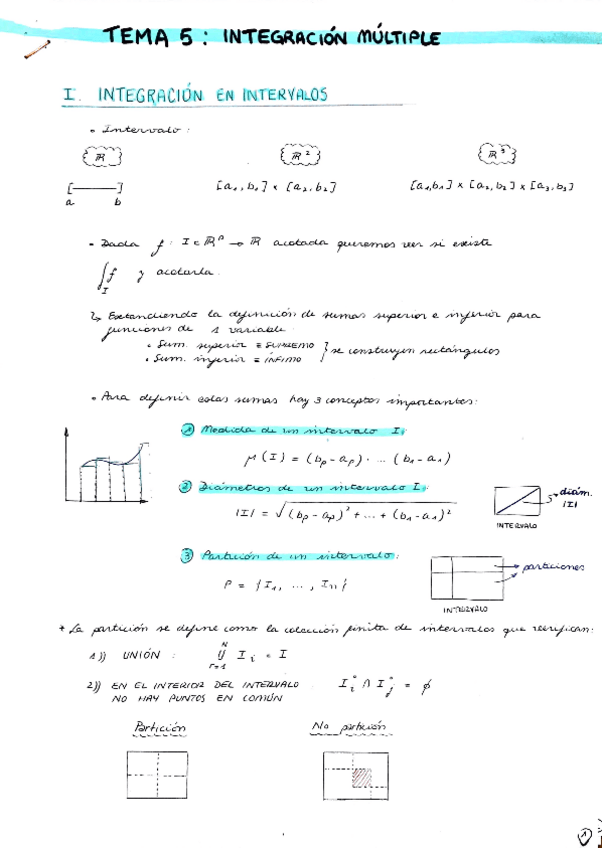 TEMA 5 : INTEGRACIÓN MÚLTIPLE
I. INTEGRACIÓN EN INTERVALOS
• Intervalo :
ℝ ℝ² ℝ³
[———] [a₁, b₁] × [a₂, b₂] [a₁, b₁] × [a₂, b₂] × [a₃, b₃]
a b
• Dada f : I ⊂ ℝᵖ → ℝ acotada queremos ver si existe
∫_I f y acotarla.
↳ Extendiendo la definición de sumas superior e inferior para
funciones de 1 variable.
• Sum. superior ≡ SUPREMO } se construyen rectángulos
• Sum. inferior ≡ ÍNFIMO
• Para definir estas sumas hay 3 conceptos importantes:
① Medida de un intervalo I:
μ(I) = (bₚ - aₚ) · ... (b₁ - a₁)
② Diámetros de un intervalo I:
|I| = √((bₚ - aₚ)² + ... + (b₁ - a₁)²)
diám. |I|
INTERVALO
③ Partición de un intervalo:
P = {I₁, ... , Iₙ}
particiones
INTERVALO
* La partición se define como la colección finita de intervalos que verifican:
1)) UNIÓN : ⋃_{r=1}^{N} Iᵢ = I
2)) EN EL INTERIOR DEL INTERVALO Iᵢ° ∩ Iⱼ° = ϕ
NO HAY PUNTOS EN COMÚN
Partición No partición
1